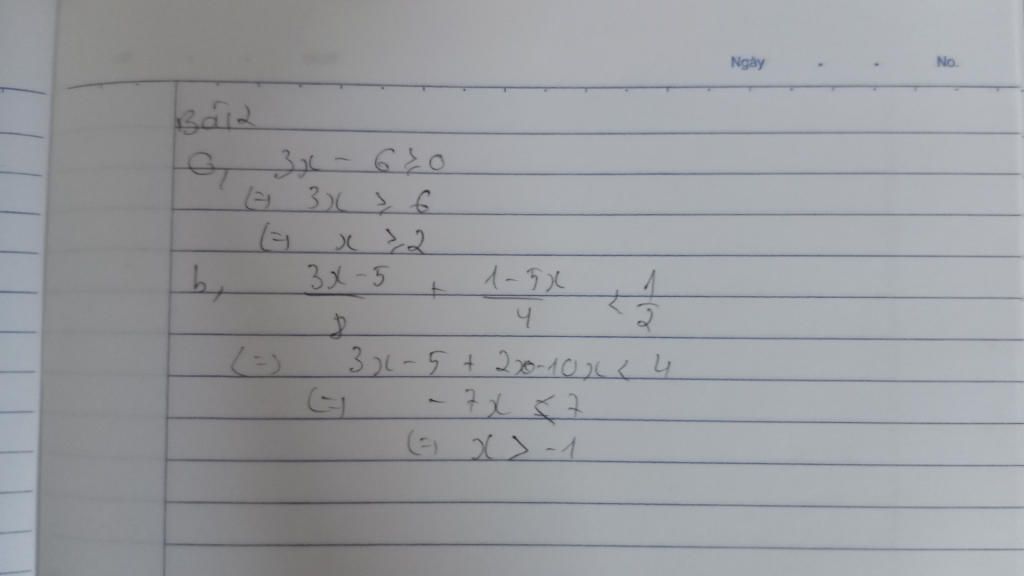 Ngày . . No.
Bài 2
a, 3x - 6 ≥ 0
(=) 3x ≥ 6
(=) x ≥ 2
b, \frac{3x-5}{8} + \frac{1-5x}{4} < \frac{1}{2}
(=) 3x - 5 + 2 - 10x < 4
(=) - 7x < 7
(=) x > -1